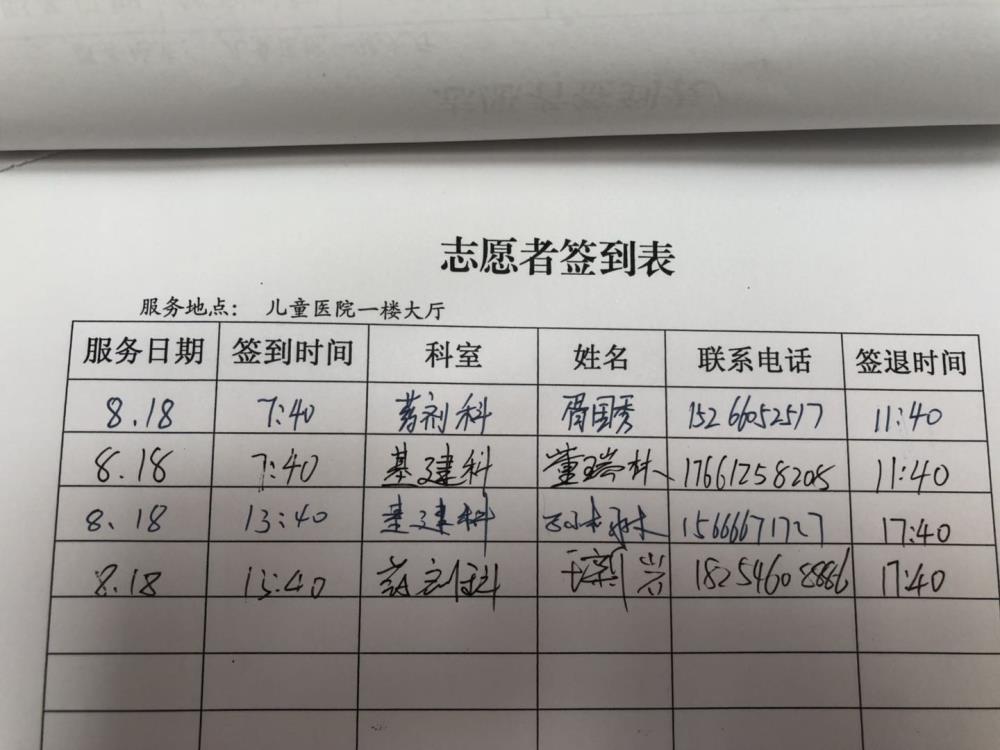 志愿者签到表
服务地点： 儿童医院一楼大厅
服务日期 签到时间 科室 姓名 联系电话 签退时间
8.18 7:40 药剂科 胥国秀 15266052517 11:40
8.18 7:40 基建科 董瑞林 17661258205 11:40
8.18 13:40 基建科 15666671727 17:40
8.18 13:40 药剂科 18254608886 17:40